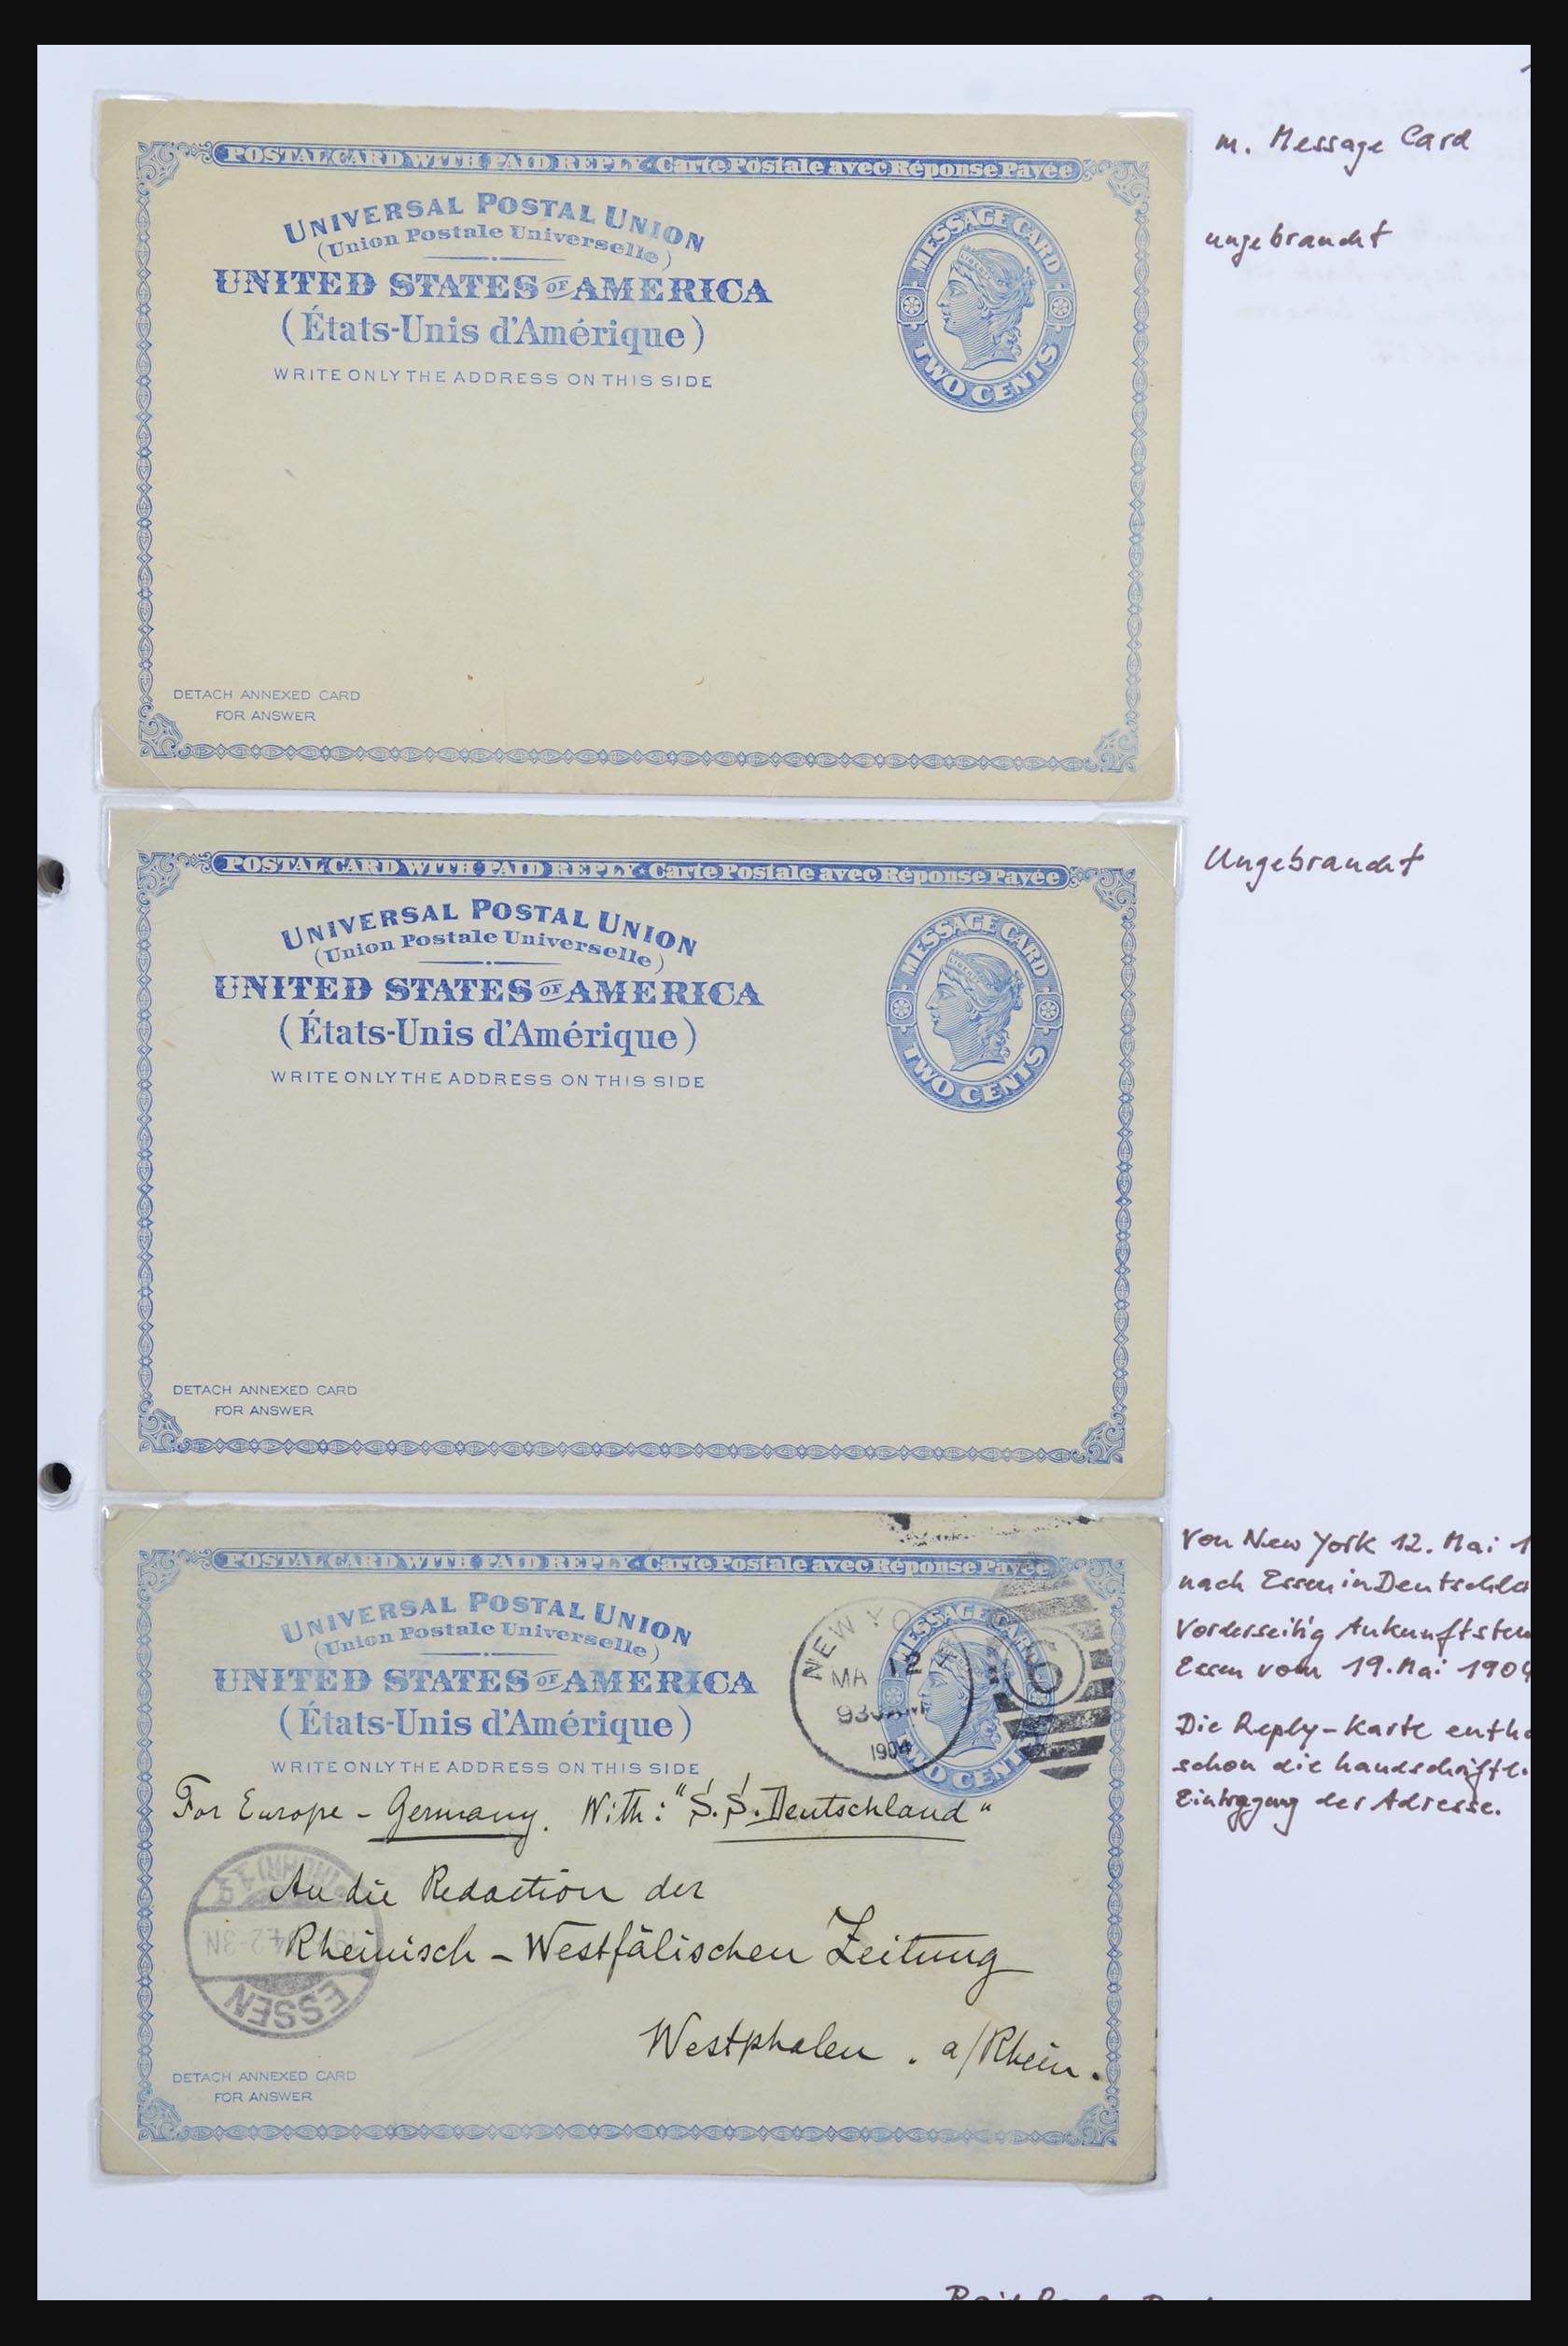 m. Message Card
ungebraucht
POSTAL CARD WITH PAID REPLY - Carte Postale avec Réponse Payée
UNIVERSAL POSTAL UNION
(Union Postale Universelle)
UNITED STATES OF AMERICA
(États-Unis d'Amérique)
WRITE ONLY THE ADDRESS ON THIS SIDE
MESSAGE CARD
LIBERTY
TWO CENTS
DETACH ANNEXED CARD
FOR ANSWER
Ungebraucht
POSTAL CARD WITH PAID REPLY - Carte Postale avec Réponse Payée
UNIVERSAL POSTAL UNION
(Union Postale Universelle)
UNITED STATES OF AMERICA
(États-Unis d'Amérique)
WRITE ONLY THE ADDRESS ON THIS SIDE
MESSAGE CARD
LIBERTY
TWO CENTS
DETACH ANNEXED CARD
FOR ANSWER
Von New York 12. Mai 1
nach Essen in Deutschla
Vorderseitig Ankunftstem
Essen vom 19. Mai 1904
Die Reply-Karte entha
schon die handschriftl.
Eintragung der Adresse.
POSTAL CARD WITH PAID REPLY - Carte Postale avec Réponse Payée
UNIVERSAL POSTAL UNION
(Union Postale Universelle)
UNITED STATES OF AMERICA
(États-Unis d'Amérique)
WRITE ONLY THE ADDRESS ON THIS SIDE
MESSAGE CARD
TWO CENTS
NEW YO
MA 12
1904
6
For Europe - Germany. With: "S.S. Deutschland"
An die Redaction der
Rheinisch - Westfälischen Zeitung
Westphalen . a/Rhein.
(RUHR)
2-3N.
ESSEN
DETACH ANNEXED CARD
FOR ANSWER